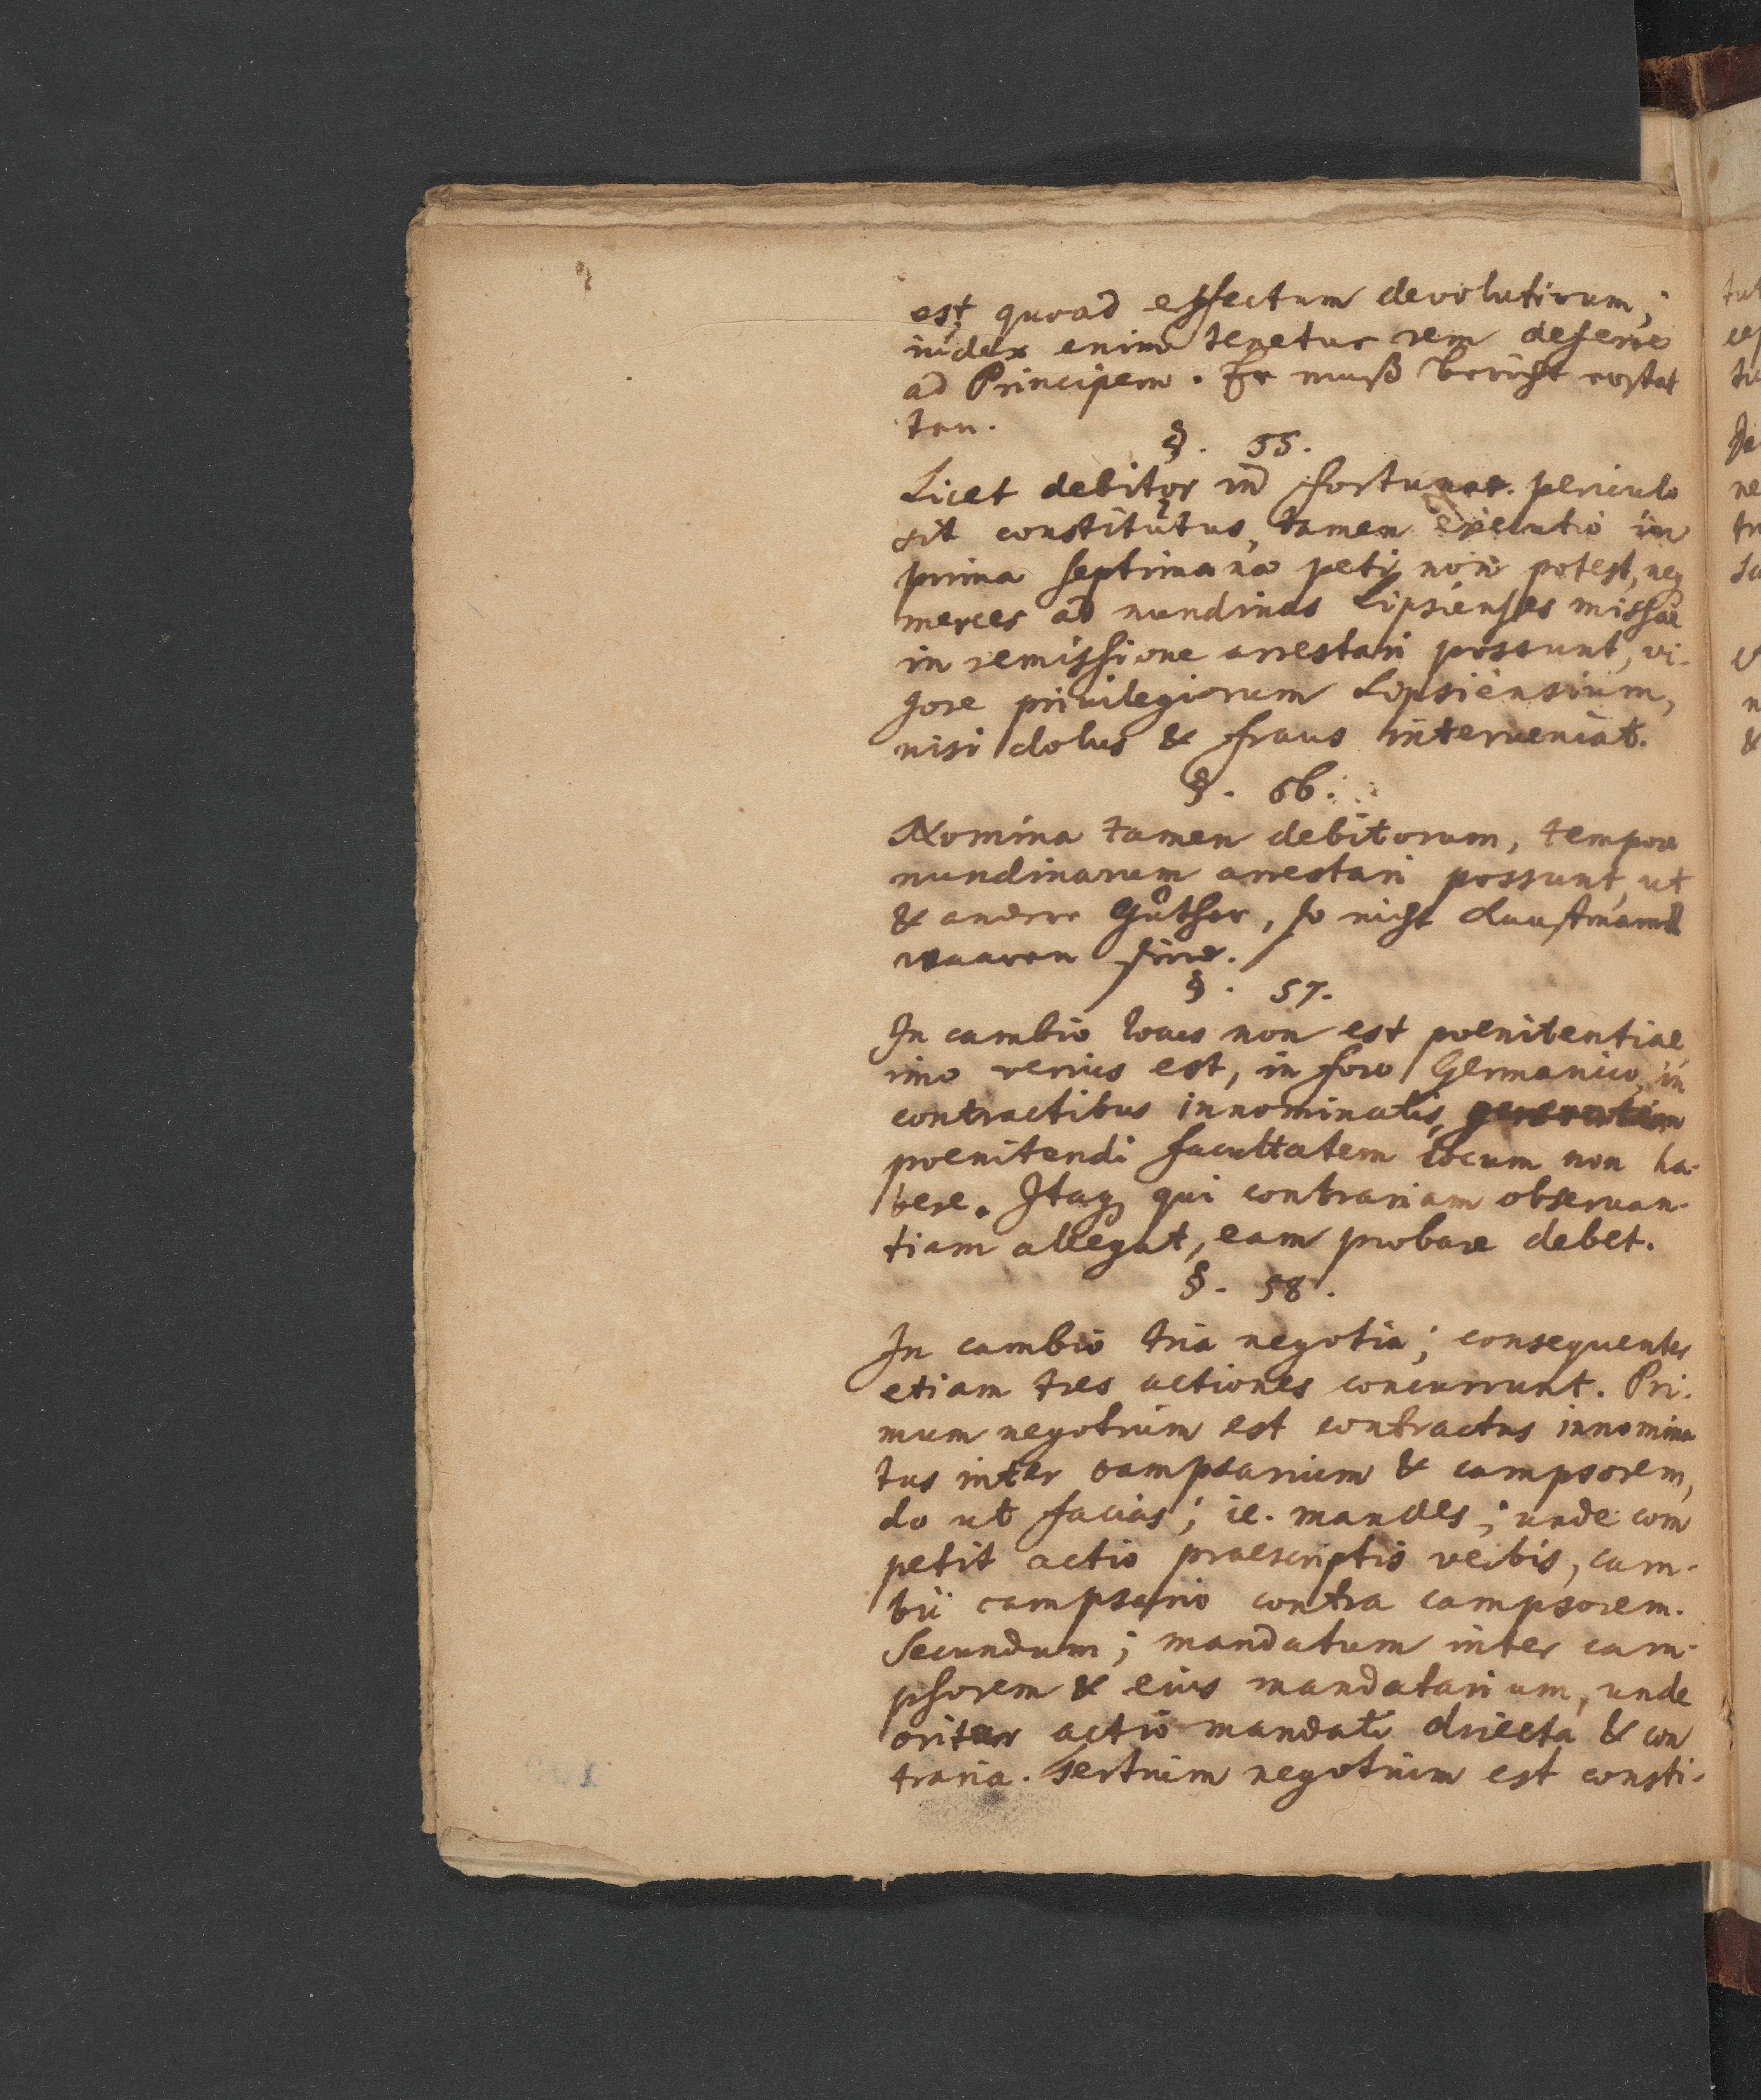 est quoad effectum devolutivum;
iudex enim tenetur rem deferre
ad Principem. Er muß bericht erstat
ten.
§. 55.
Licet debitor in fortunae periculo
sit constitutus, tamen executio in
prima septimana peti non potest, neq
merces ad nundinas Lipsienses missae
in remissione arrestari possunt, vi-
gore privilegiorum Lipsiensium,
nisi dolus & fraus interveniat.
§. 56.
Nomina tamen debitorum, tempore
nundinarum arrestari possunt, ut
& andere Güther, so nicht Kauffmanns
waaren sind.
§. 57.
In cambio locus non est poenitentiae,
imo verius est, in foro Germanico, in
contractibus innominatis,
poenitendi facultatem locum non ha-
bere. Itaq qui contrariam observan-
tiam allegat, eam probare debet.
§. 58.
In cambio tria negotia; consequenter
etiam tres actiones concurrunt. Pri-
mum negotium est contractus innomina
tus inter campsarium & campsorem,
do ut facias; ie. mandes; unde com
petit actio praescriptis verbis, cam-
bii campsario contra campsorem.
Secundum; mandatum inter cam-
psorem & eius mandatarium, unde
oritur actio mandati directa & con
traria. Tertium negotium est consti-